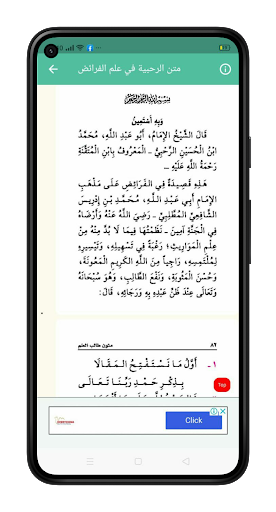 متن الرحبية في علم الفرائض
بِسْمِ اللهِ الرَّحْمٰنِ الرَّحِيمِ
وَبِهِ أَسْتَعِينُ
قَالَ الشَّيْخُ الإِمَامُ، أَبُو عَبْدِ اللَّهِ، مُحَمَّدُ
ابْنُ الحُسَيْنِ الرَّحْبِيُّ - المَعْرُوفُ بِابْنِ المُتَقَّنَةِ
رَحْمَةُ اللَّهِ عَلَيْهِ -:
هَذِهِ قَصِيدَةٌ فِي الفَرَائِضِ عَلَى مَذْهَبِ
الإِمَامِ أَبِي عَبْدِ اللَّهِ، مُحَمَّدِ بْنِ إِدْرِيسَ
الشَّافِعِيِّ المُطَّلِبِيِّ - رَضِيَ اللَّهُ عَنْهُ وَأَرْضَاهُ
فِي الجَنَّةِ آمِينَ - نَظَمْتُهَا فِيمَا لَا بُدَّ مِنْهُ مِنْ
عِلْمِ المَوَارِيثِ؛ رَغْبَةً فِي تَسْهِيلِهِ، وَتَيْسِيرِهِ
لِمُلْتَمِسِهِ، رَاجِياً مِنَ اللَّهِ الكَرِيمِ المَعُونَةَ،
وَحُسْنَ المَثُوبَةِ، وَنَفْعَ الطَّالِبِ، وَهُوَ سُبْحَانَهُ
وَتَعَالَى عِنْدَ ظَنِّ عَبْدِهِ بِهِ وَرَجَائِهِ، قَالَ:
٨٢ متون طالب العلم
١- أَوَّلُ مَا نَسْتَفْتِحُ المَقَالَا
بِذِكْرِ حَمْدِ رَبِّنَا تَعَالَى
Top
Click